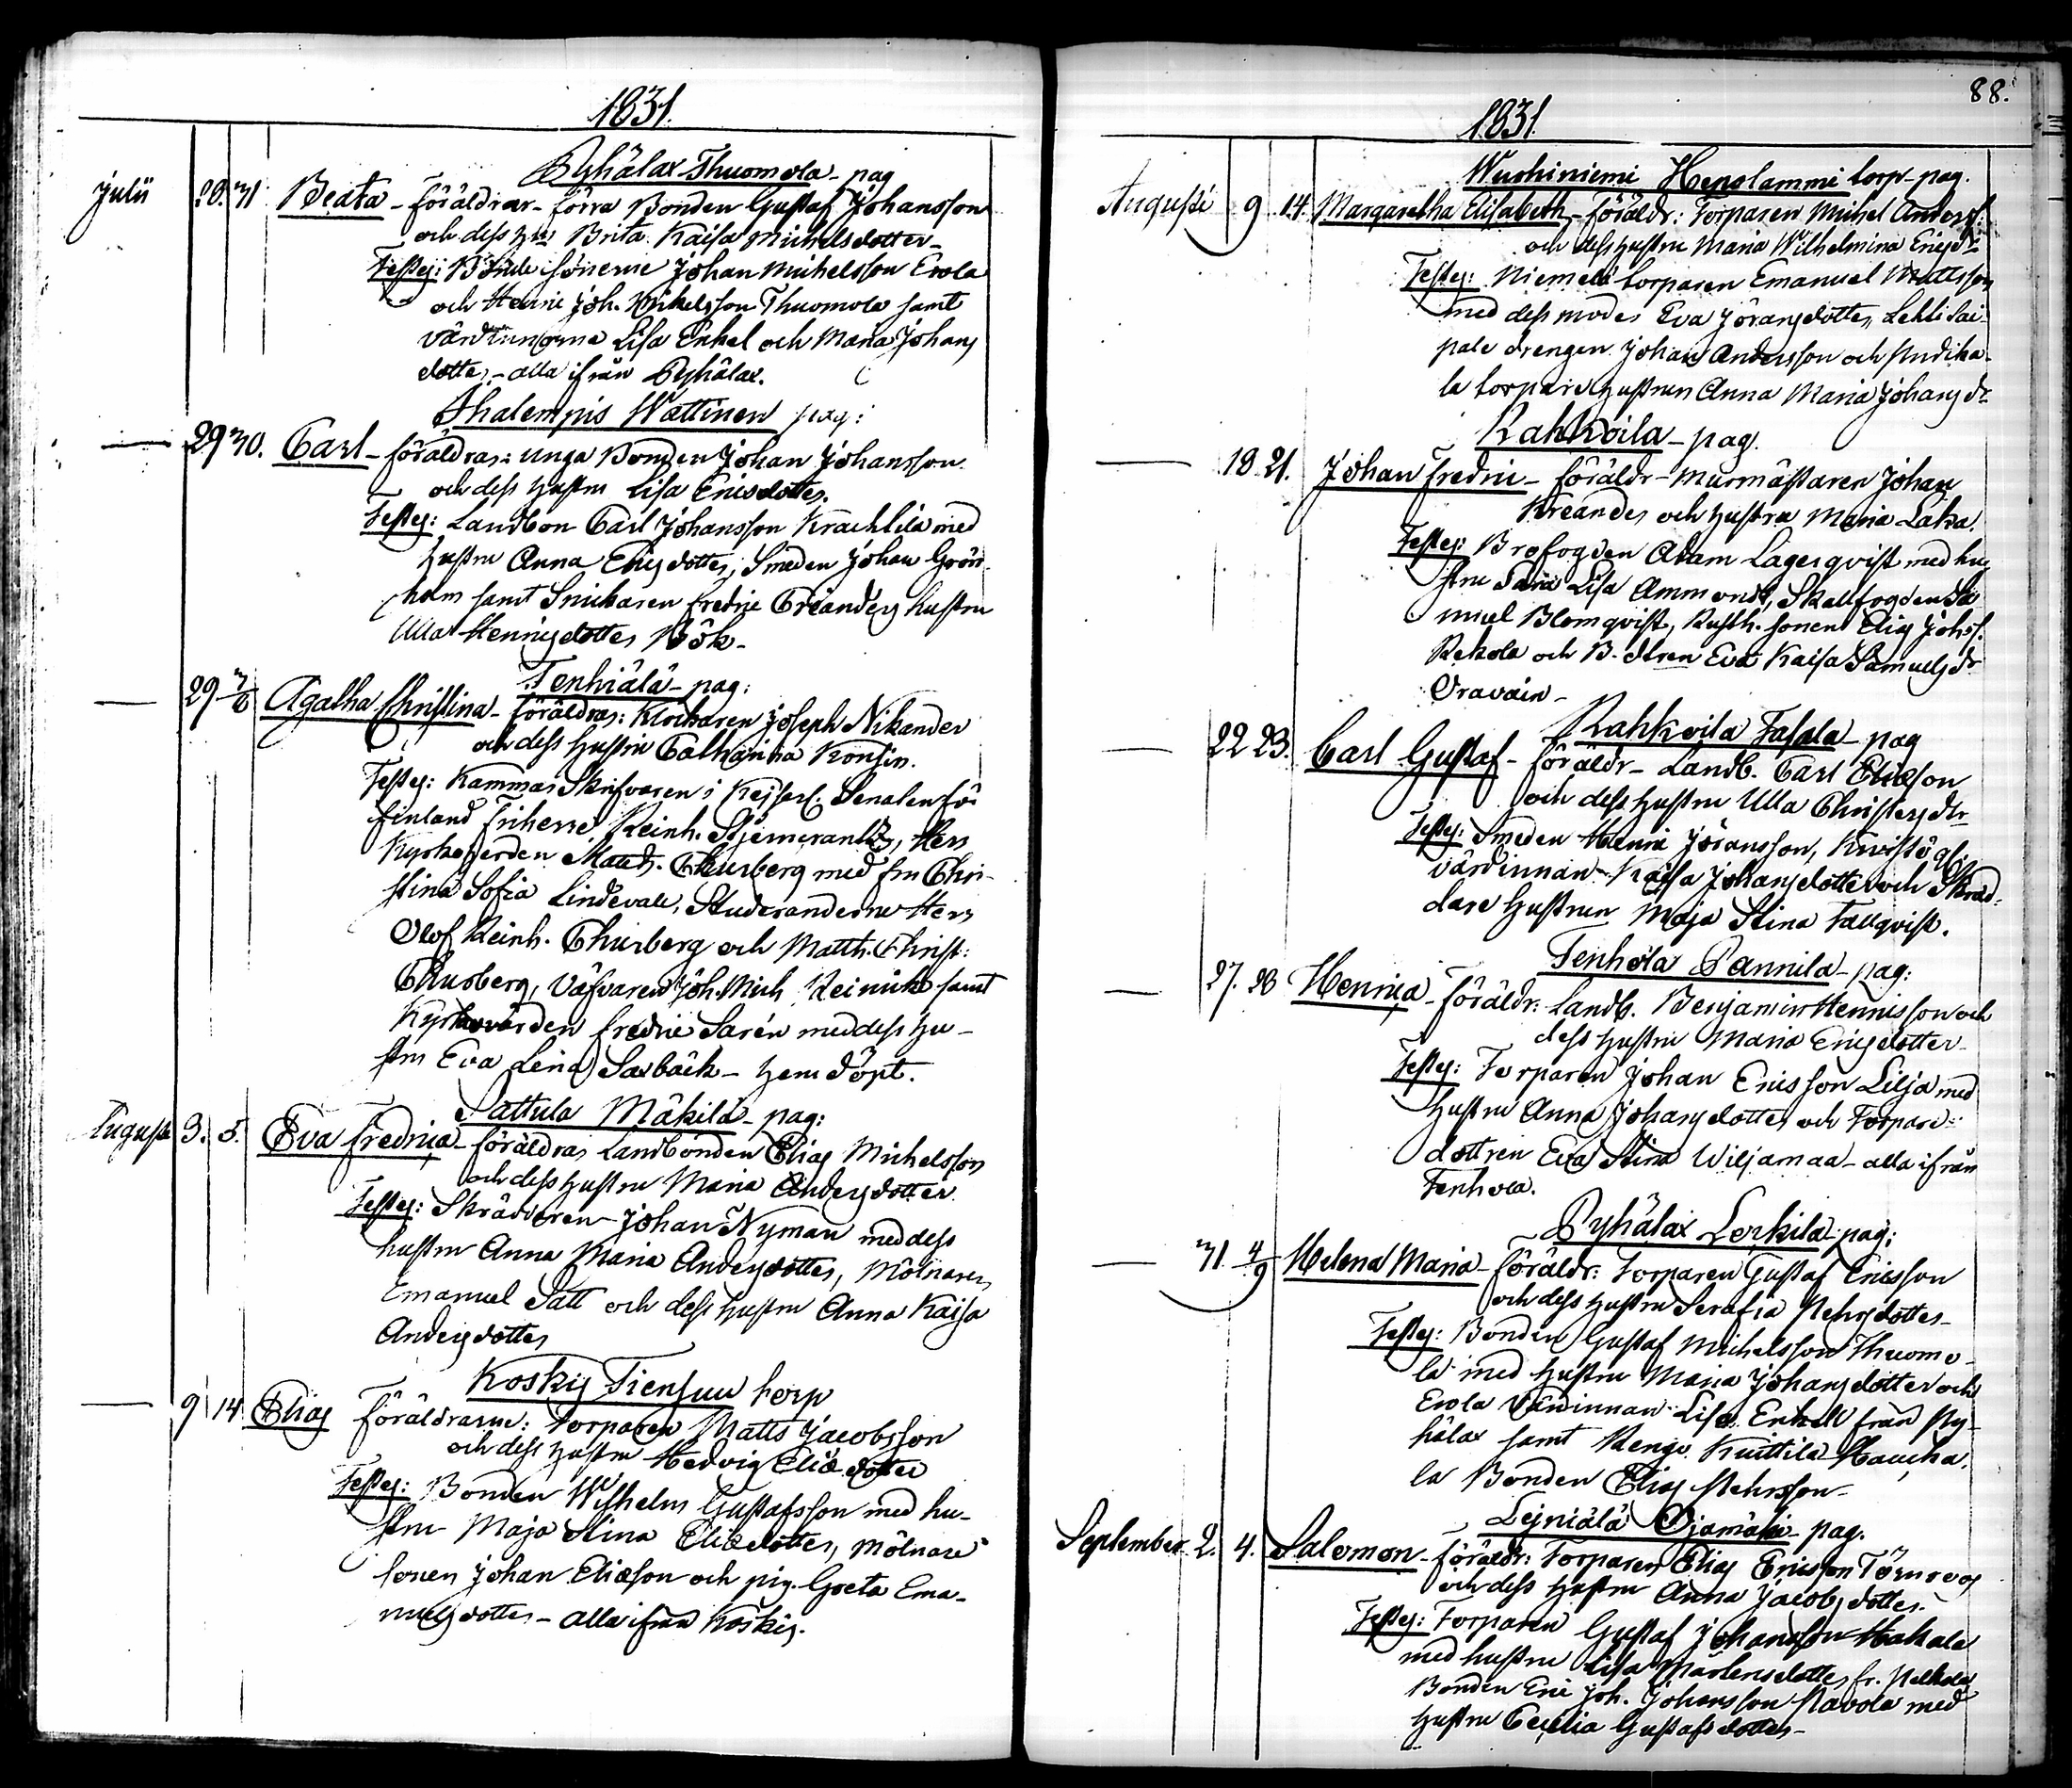 1831.
Pyhälax Thuomola - pag
Julii 28. 31 Beata - föräldrar - förra Bonden Gustaf Johansson
och dess hu Brita Kaisa Michelsdotter -
Testes: Bondesönerne Johan Michelsson Erola
och Henric Joh. Michelsson Thuomola samt
värdinnorna Lisa Enkel och Maria Johans
dotter, - alla ifrån Pyhälax.
Thalempis Wättinen pag:
29 30. Carl - föräldrar: unga Bonden Johan Johansson
och dess hustru Lisa Ericsdotter.
Testes: Landbon Carl Johansson Krachtila med
hustru Anna Ericsdotter, Smeden Johan Grön
holm samt Snickaren Fredric Creanders hustru
Ulla Henricsdotter Bök -
Tenhiälä - pag:
29 7/8 Agatha Christina - föräldrar: Klockaren Joseph Nikander
och dess hustru Catharina Konsin.
Testes: Kammar Skrifvaren i Kejserl. Senaten för
Finland Friherre Reinh. Stjerncrantz, Herr
Kyrkoherden Matth. Chursberg med fru Chri-
stina Sofia Lindevall, Studeranderne Herr
Olof Reinh. Thurberg och Matth. Christ:
Thurberg, Väfvaren Joh. Mich Reinick samt
Kyrkovärden Fredric Sarén med dess hu-
stru Eva Lena Saxbäck - hemdöpt.
Sattula Mäkilä - pag:
Augusti 3. 5. Eva Fredrica - föräldrar Landbonden Elias Michelsson
och dess hustru Maria Andersdotter
Testes: Skräddaren Johan Nyman med dess
hustru Anna Maria Andersdotter, Mölnaren
Emanuel Satt och dess hustru Anna Kaisa
Andersdotter
Koskis Tiensuu torp
9 14 Elias föräldrarne: Torparen Matts Jacobsson
och dess hustru Hedvig Eliædotter
Testes: Bonden Wilhelm Gustafsson med hu-
stru Maja Stina Eliædotter, Mölnare
sonen Johan Eliæson och pig. Greta Ema-
nuelsdotter - alla ifrån Koskis.
88.
1831.
Wuohiniemi Henolammi torp - pag.
Augusti 9 14 Margaretha Elisabeth - föräldr: Torparen Michel Anderss:
och dess hustru Maria Wilhelmina Ericsdr
Testes: Niemelä torparen Emanuel Mattsson
med dess moder Eva Jöransdotter, Lehti Sai-
pale drengen Johan Andersson och Andika-
la torpare hustrun Anna Maria Johans dr
Rahkoila - pag.
18 21. Johan Fredric - föräldr - Murmästaren Johan
Kreander och hustru Maria Laka.
Testes: Brofogden Adam Lagerqvist med hu
stru Sara Lisa Ammondt, Skallfogden Sa
muel Blomqvist, Rusth. sonen Elias Johss.
Rekola och B. dtren Eva Kaisa Samuelsdr
Oravain -
Rahkoila Fasala - pag
22 23. Carl Gustaf - föräldr - Landb. Carl Eliæson
och dess hustru Ulla Christersdtr
Testes: Smeden Henric Jöransson,
värdinnan Kajsa Johansdotter och Skräd-
dare hustrun Maja Stina Fällqvist.
Tenhola Pannila - pag:
27. 28 Henrica - föräldr: Landb. Benjamin Henricsson och
dess hustru Maria Ericsdotter -
Testes: Torparen Johan Ericsson Lilja med
hustru Anna Johansdotter, och Torpare
dottren Eva Stina Wiljamaa - alla ifrån
Tenhola.
Pyhälax Lerkila - pag:
31 4/9 Helena Maria - föräldr: Torparen Gustaf Ericsson
och dess hustru Serafia Mehrsdotter -
Testes: Bonden Gustaf Michelsson Thuomo-
la med hustru Maria Johansdotter och
Erola Värdinnan Lisa Enkell från Py-
hälax samt Rengo Kuittila Haucka-
la Bonden Elias Mehrsson -
Leiniälä Ojamäki - pag.
September 2. 4. Salomon - föräldr: Torparen Elias Ericsson Törnroos
och dess hustru Anna Jacobsdotter.
Testes: Torparen Gustaf Johansson Hakala
med hustru Lisa Mårtensdotter fr.
Bonden Eric Joh. Johansson Navola med
hustru Cecilia Gustafsdotter -